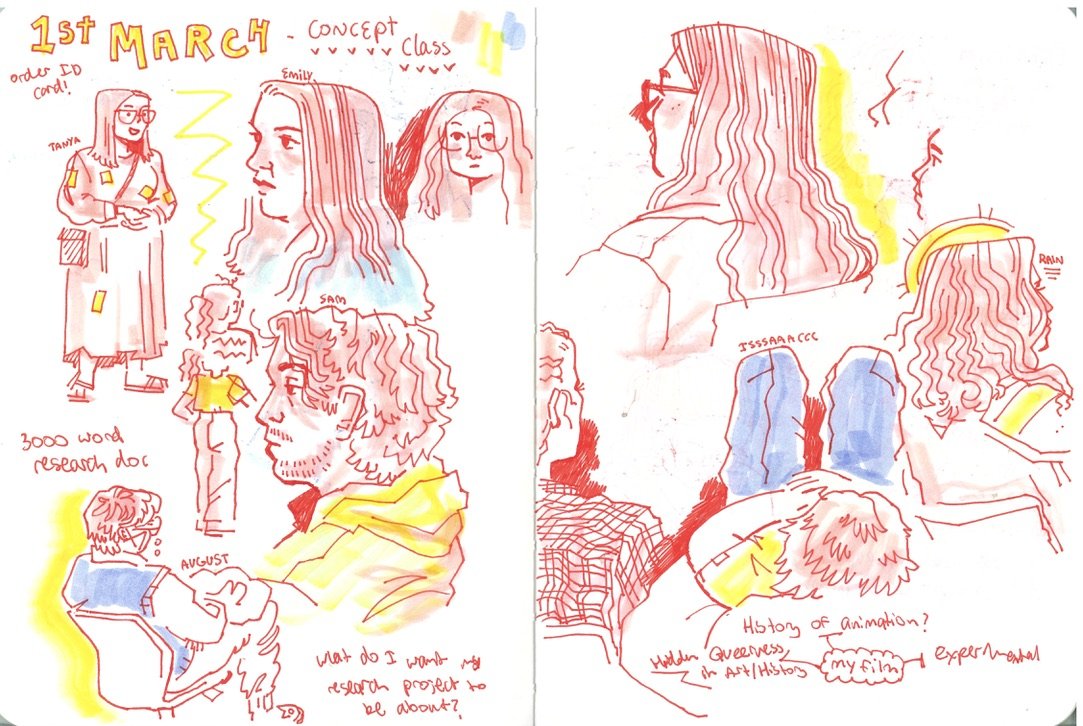 1st MARCH - CONCEPT
Class
order ID
card!
Emily
TANYA
SAM
3000 word
research doc
AUGUST
what do I want my
research project to
be about?
RAIN
ISSSAAACCC
History of animation?
Hidden Queerness
in Art/History
my film
experimental